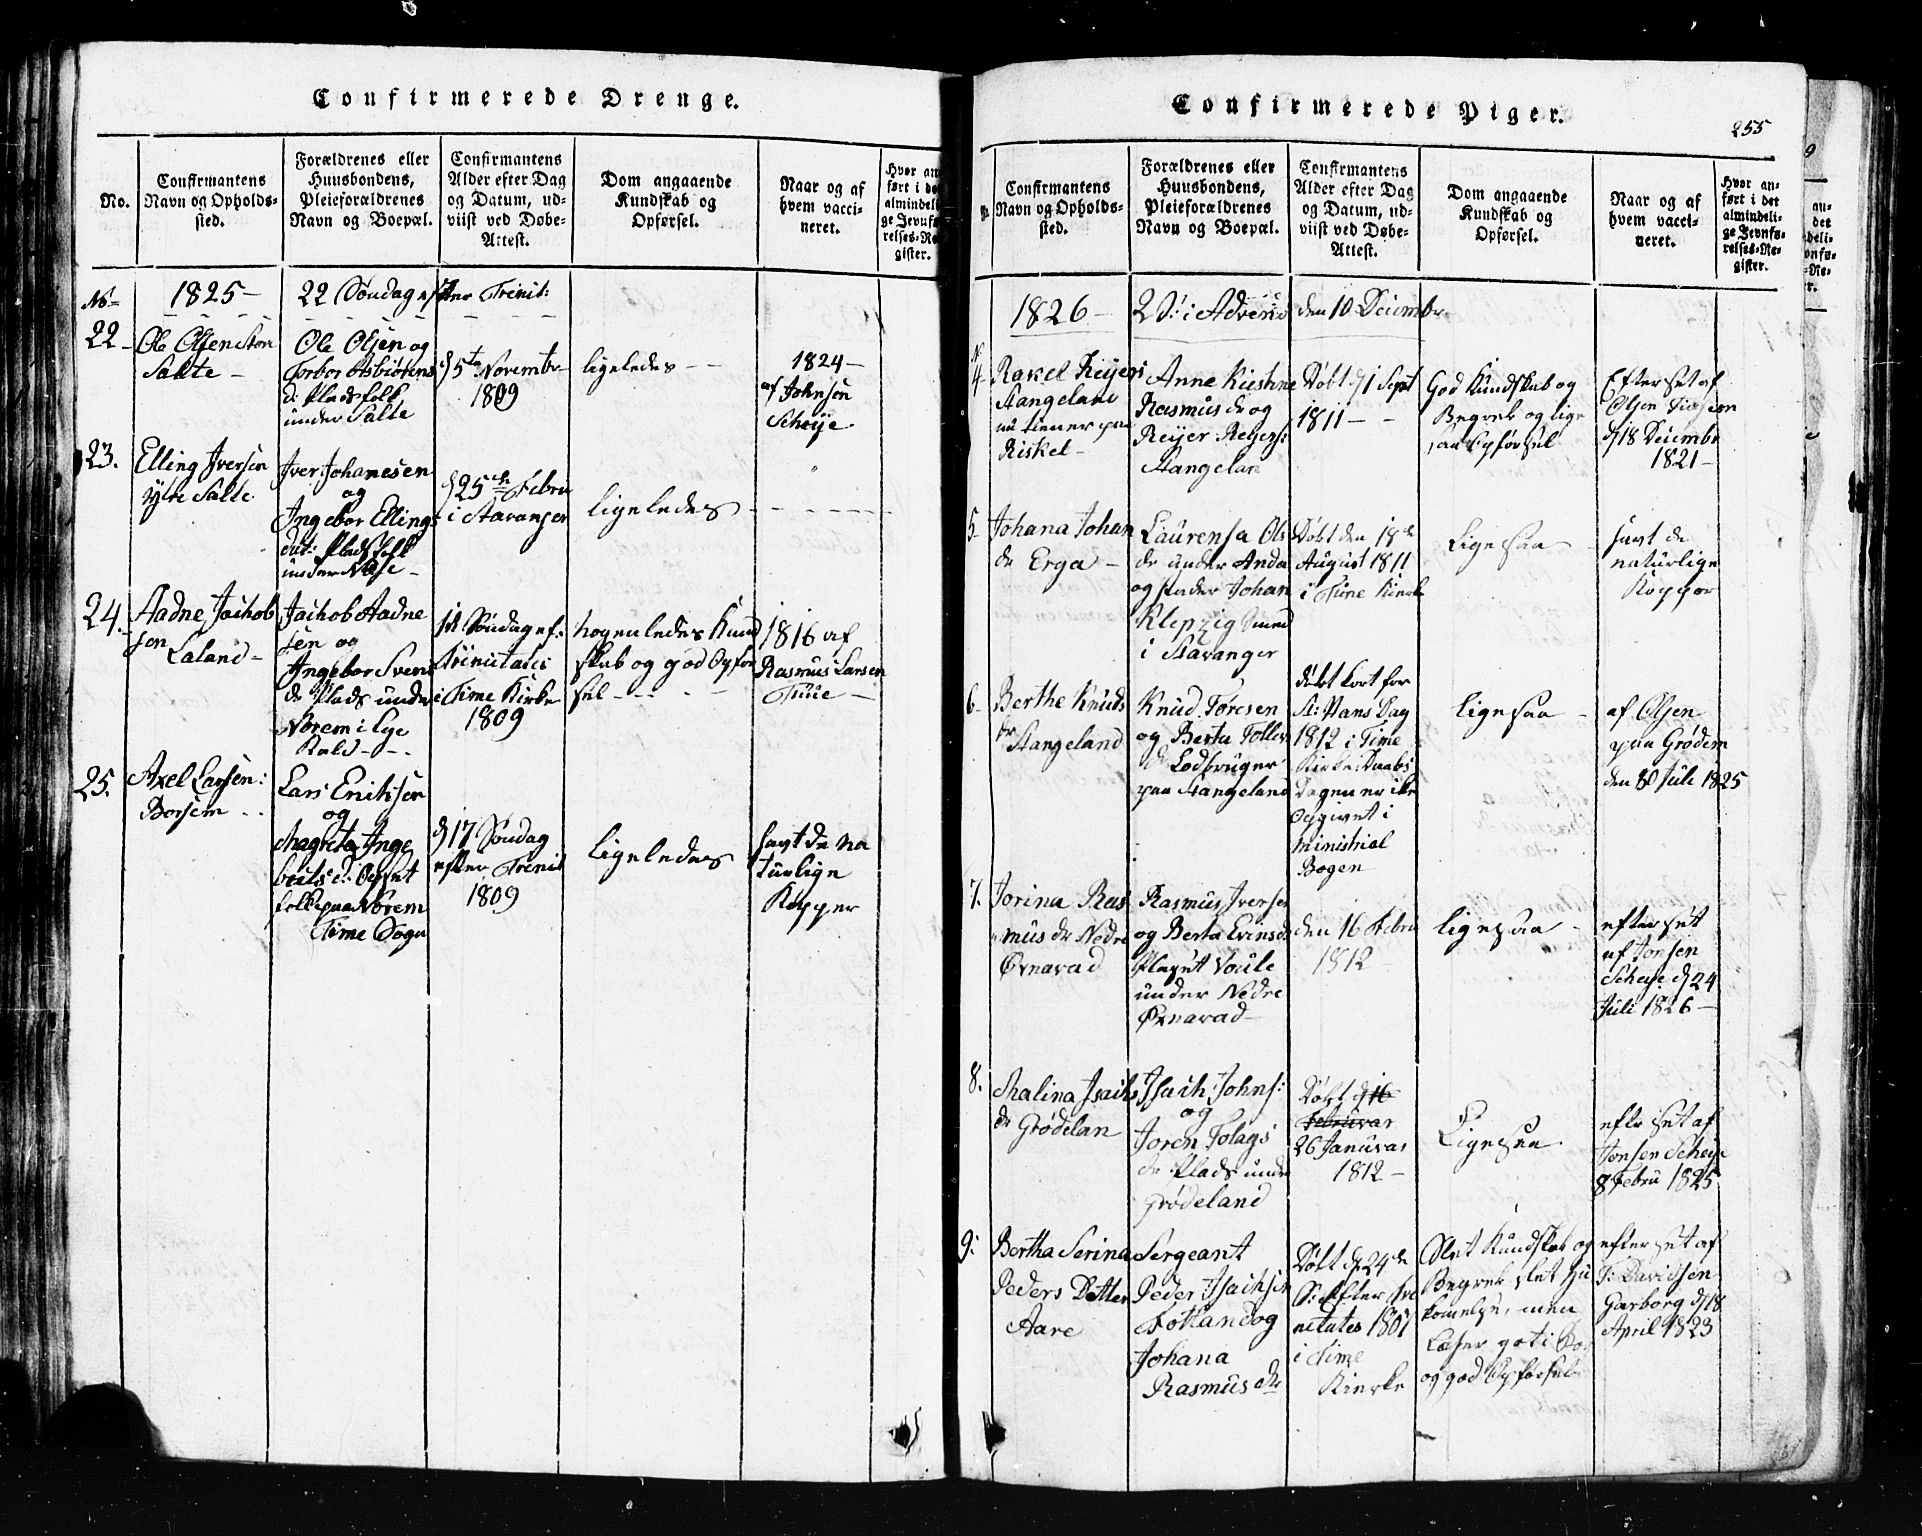 Confirmerede Drenge.
No.
Confirmantens
Navn og Opholds-
sted.
Forældrenes eller
Huusbondens,
Pleieforældrenes
Navn og Boepæl.
Confirmantens
Alder efter Dag
og Datum, ud-
viist ved Døbe-
Attest.
Dom angaaende
Kundskab og
Opførsel.
Naar og af
hvem vacci-
neret.
Hvor an
ført i de
almindeli
ge Jevnfø
relses-Re
gister.
No
1825 –
22 Søndag efter Trinit:
22
Ole Olsen Stor
Salte –
Ole Olsen og
Torbor Asbiørens
d: Pladsfolk
under Salte
d 5te Novembr
1809
ligeledes – –
1824 –
af Johnsen
Scheije
23.
Elling Iversen
ytre Salte
Iver Johanesen
og
Ingebor Ellings
dat: Pladsfolk
under Nese –
d 25de Febru
i Stavanger
ligeledes
24.
Aadne Jachob
sen
Laland –
Jachob Aadne
sen og
Ingebor Svens
dr Plads under
Norem i Lye
Kald – –
1st Søndag ef.
Trinitatis
i Time Kirke
1809
nogenledes Kund
skab og god Opfør
sel – – –
1816 af
Rasmus Larsen
Tiue –
25.
Axel Larsen:
Borsem
Lars Eriksen
og
Magreta Inge
brets d: Opset
folk paa Norem
Time Sogn
d 17 Søndag
efter Trinit
1809
ligeledes
havt de na
turlige
Kopper
Confirmerede Piger.
255
Confirmantens
Navn og Opholds-
sted.
Forældrenes eller
Huusbondens,
Pleieforældrenes
Navn og Boepæl.
Confirmantens
Alder efter Dag
og Datum, ud-
viist ved Døbe-
Attest.
Dom angaaende
Kundskab og
Opførsel.
Naar og af
hvem vacci-
neret.
Hvor an-
ført i det
almindeli-
ge Jevnfø-
relses-Re-
gister.
1826 –
2 S: i Advent den 10 Decembr
4
Rakel Reijers
Stangelane
nu tiener paa
Riskel –
Anne Kiestine
Rasmus dr og
Reijer Reijers:
Stangelan
Døbt d 1 Sept
1811 – –
God Kundskab og
Begreb og lige
saa Opførsel
Efter set af
Olsen
d 18 Decembr
1821 –
5
Johana Johan
dr Erga –
Laurensa Ols
dr under Anda
og fader Johan
Klepzig Smed
i Stavanger
Døbt den 18de
August 1811
i Time Kierke
Ligesaa –
havt de
naturlige
Kopper
6
Berthe Knuds
dr Stangeland
Knud Toresen
og Berta Tollev
dr Lodbruger
paa Stangeland
døbt kort for
St: Hans Dag
1812 i Time
Kirke: Daabs
Dagen er ike
Opgivet i
ministrial
Bogen
ligesaa –
af Olsen
paa Grødem
den 8 Juli 1825
7.
Jorina Ras
mus dr Nedre
Ørnavad
Rasmus Iversen
og Berta Evensdr
Plaset Voule
under Nedre
Ørnavad –
den 16 Febru
1812 –
ligesaa –
efter set
af Jonsen
Scheije d 24
Juli 1826 –
8.
Malina Isachs
dr Grødelan
Isach Johns:
og
Joren Tolags
dr Plads under
Grødeland
Døbt d 16
Februvar
26 Januvar
1812 –
Ligesaa
efter set af
Jonsen Scheije
8 Febru 1825
9:
Bertha Serina
Peders Datter
Aare
Sergeant
Peder Isachsen
Fotland og
Johana
Rasmus dr
Døbt d 24de
S: Efter tri
nitates 1807
i Time
Kierke
Slet Kundskab og
Begreb slet Hu
komelse, men
Læser got i Bog
og god Opførsel
efter set af
T: Davidsen
Garborg d 18
April 1823